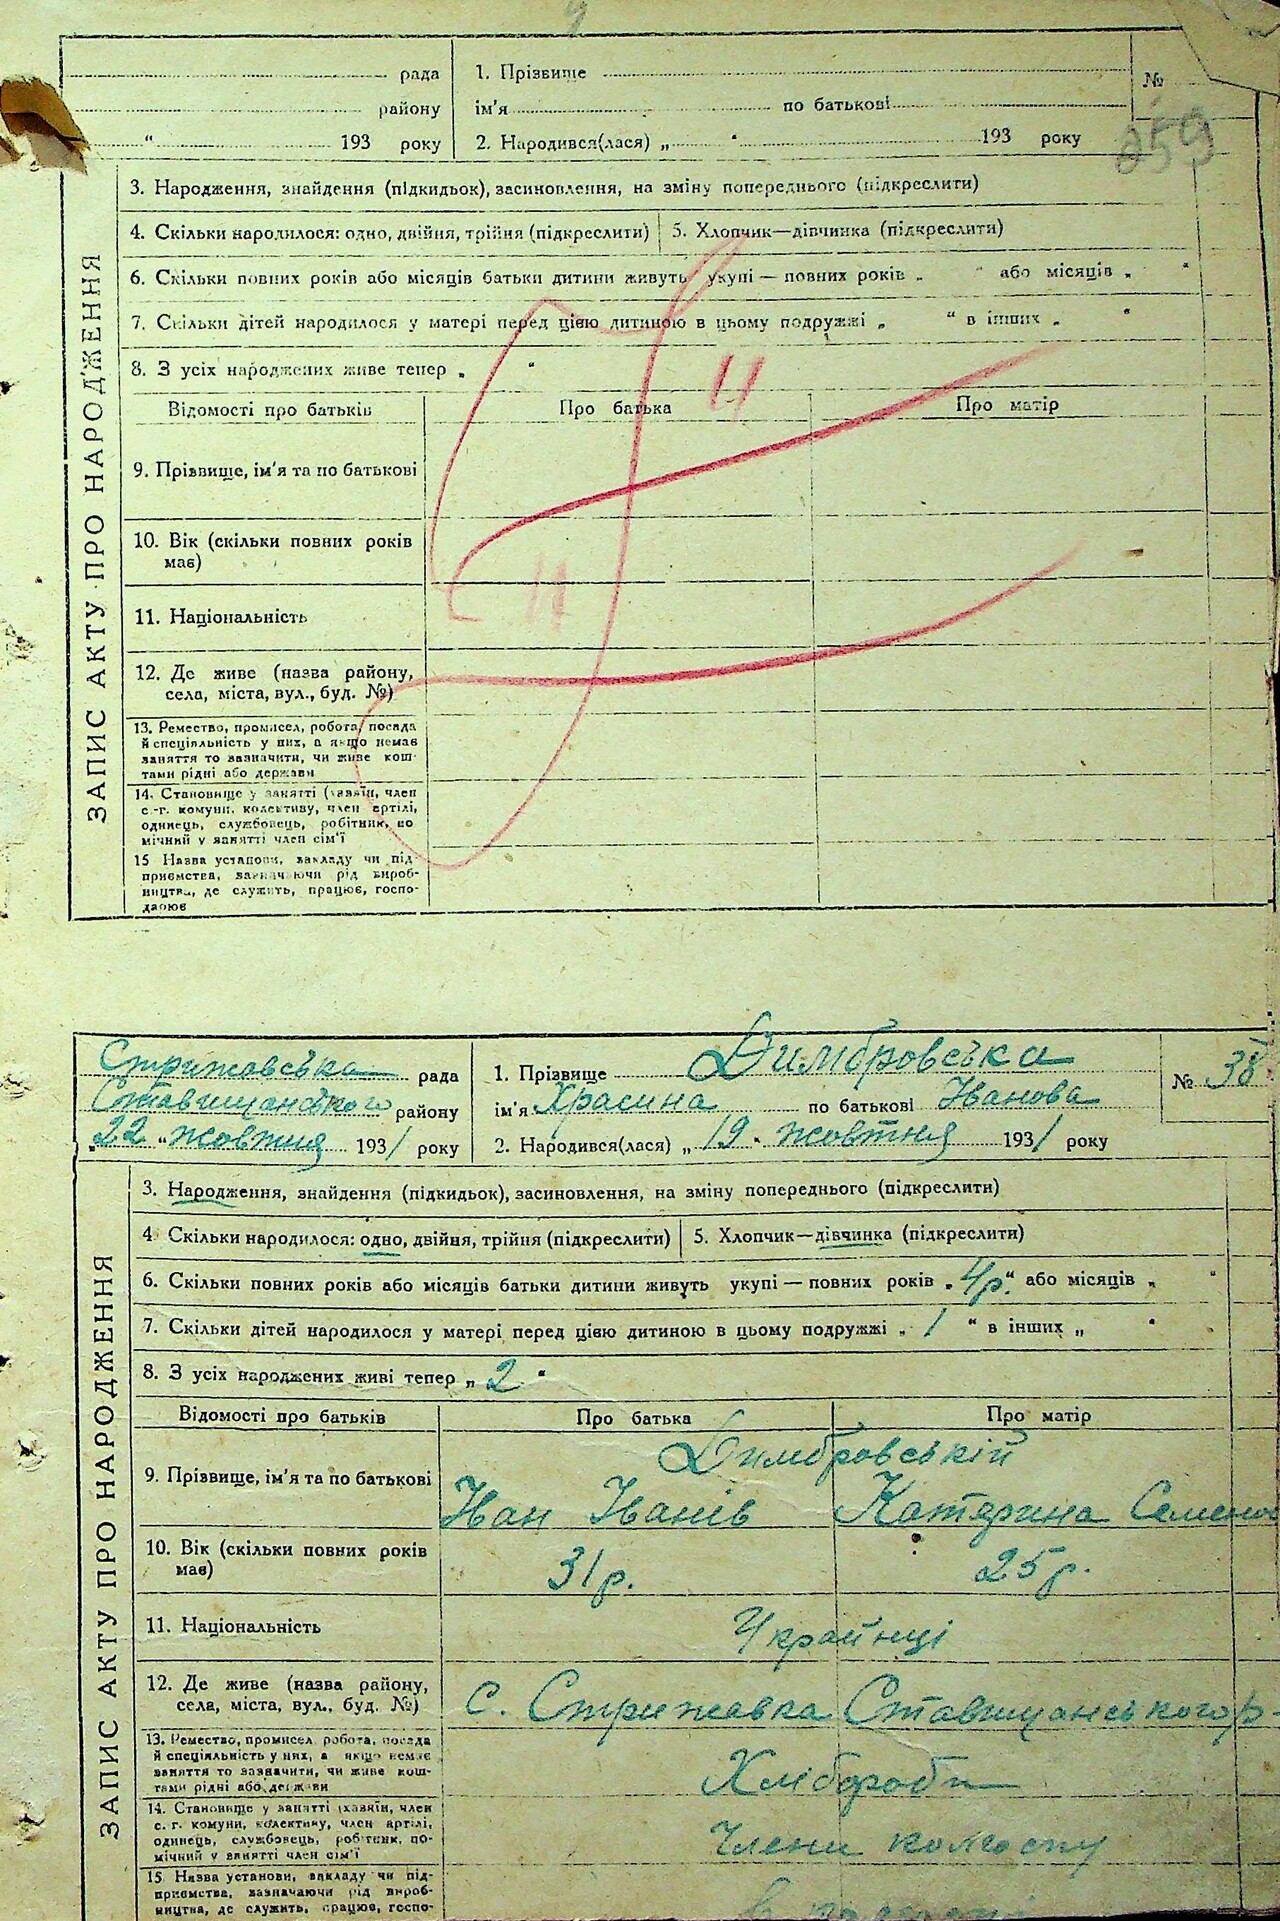 рада
1. Прізвище
№
району
ім'я по батькові
259
" 193 року
2. Народився(лася) „ " 193 року
ЗАПИС АКТУ ПРО НАРОДЖЕННЯ
3. Народження, знайдення (підкидьок), засиновлення, на зміну попереднього (підкреслити)
4. Скільки народилося: одно, двійня, трійня (підкреслити)
5. Хлопчик—дівчинка (підкреслити)
6. Скільки повних років або місяців батьки дитини живуть укупі — повних років „ " або місяців „ "
7. Скільки дітей народилося у матері перед цією дитиною в цьому подружжі „ " в інших „ "
8. З усіх народжених живе тепер „ "
Відомості про батьків
Про батька
Про матір
9. Прізвище, ім'я та по батькові
10. Вік (скільки повних років
має)
11. Національність
12. Де живе (назва району,
села, міста, вул., буд. №)
13. Ремество, промисел, робота, посада
й спеціяльність у них, а якщо немає
заняття то зазначити, чи живе кош-
тами рідні або держави
14. Становище у занятті (хазяїн, член
с.-г. комуни, колективу, член артілі,
одинець, службовець, робітник, по
мічний у занятті член сім'ї
15 Назва установи, закладу чи під-
приємства, зазначаючи рід вироб-
ництва, де служить, працює, госпо-
дарює
Стрижавська рада
1. Прізвище Димбровська
№ 38
Ставищанського району
ім'я Красина по батькові Іванова
„22 " жовтня 1931 року
2. Народився(лася) „19 " жовтня 1931 року
ЗАПИС АКТУ ПРО НАРОДЖЕННЯ
3. Народження, знайдення (підкидьок), засиновлення, на зміну попереднього (підкреслити)
4. Скільки народилося: одно, двійня, трійня (підкреслити)
5. Хлопчик—дівчинка (підкреслити)
6. Скільки повних років або місяців батьки дитини живуть укупі — повних років „4р." або місяців „ "
7. Скільки дітей народилося у матері перед цією дитиною в цьому подружжі „ 1 " в інших „ "
8. З усіх народжених живі тепер „ 2 "
Відомості про батьків
Про батька
Про матір
9. Прізвище, ім'я та по батькові
Димбровський
Иван Іванів
Катярина Семенов
10. Вік (скільки повних років
має)
31р.
25р.
11. Національність
Українці
12. Де живе (назва району,
села, міста, вул., буд. №)
с. Стрижавка Ставищанського р-
13. Ремество, промисел, робота, посада
й спеціяльність у них, а якщо немає
заняття то зазначити, чи живе кош-
тами рідні або держави
Хлібороби
14. Становище у занятті (хазяїн, член
с. г. комуни, колективу, член артілі,
одинець, службовець, робітник, по-
мічний у занятті член сім'ї
Члени колгоспу
15. Назва установи, закладу чи під-
приємства, зазначаючи рід вироб-
ництва, де служить, працює, госпо-